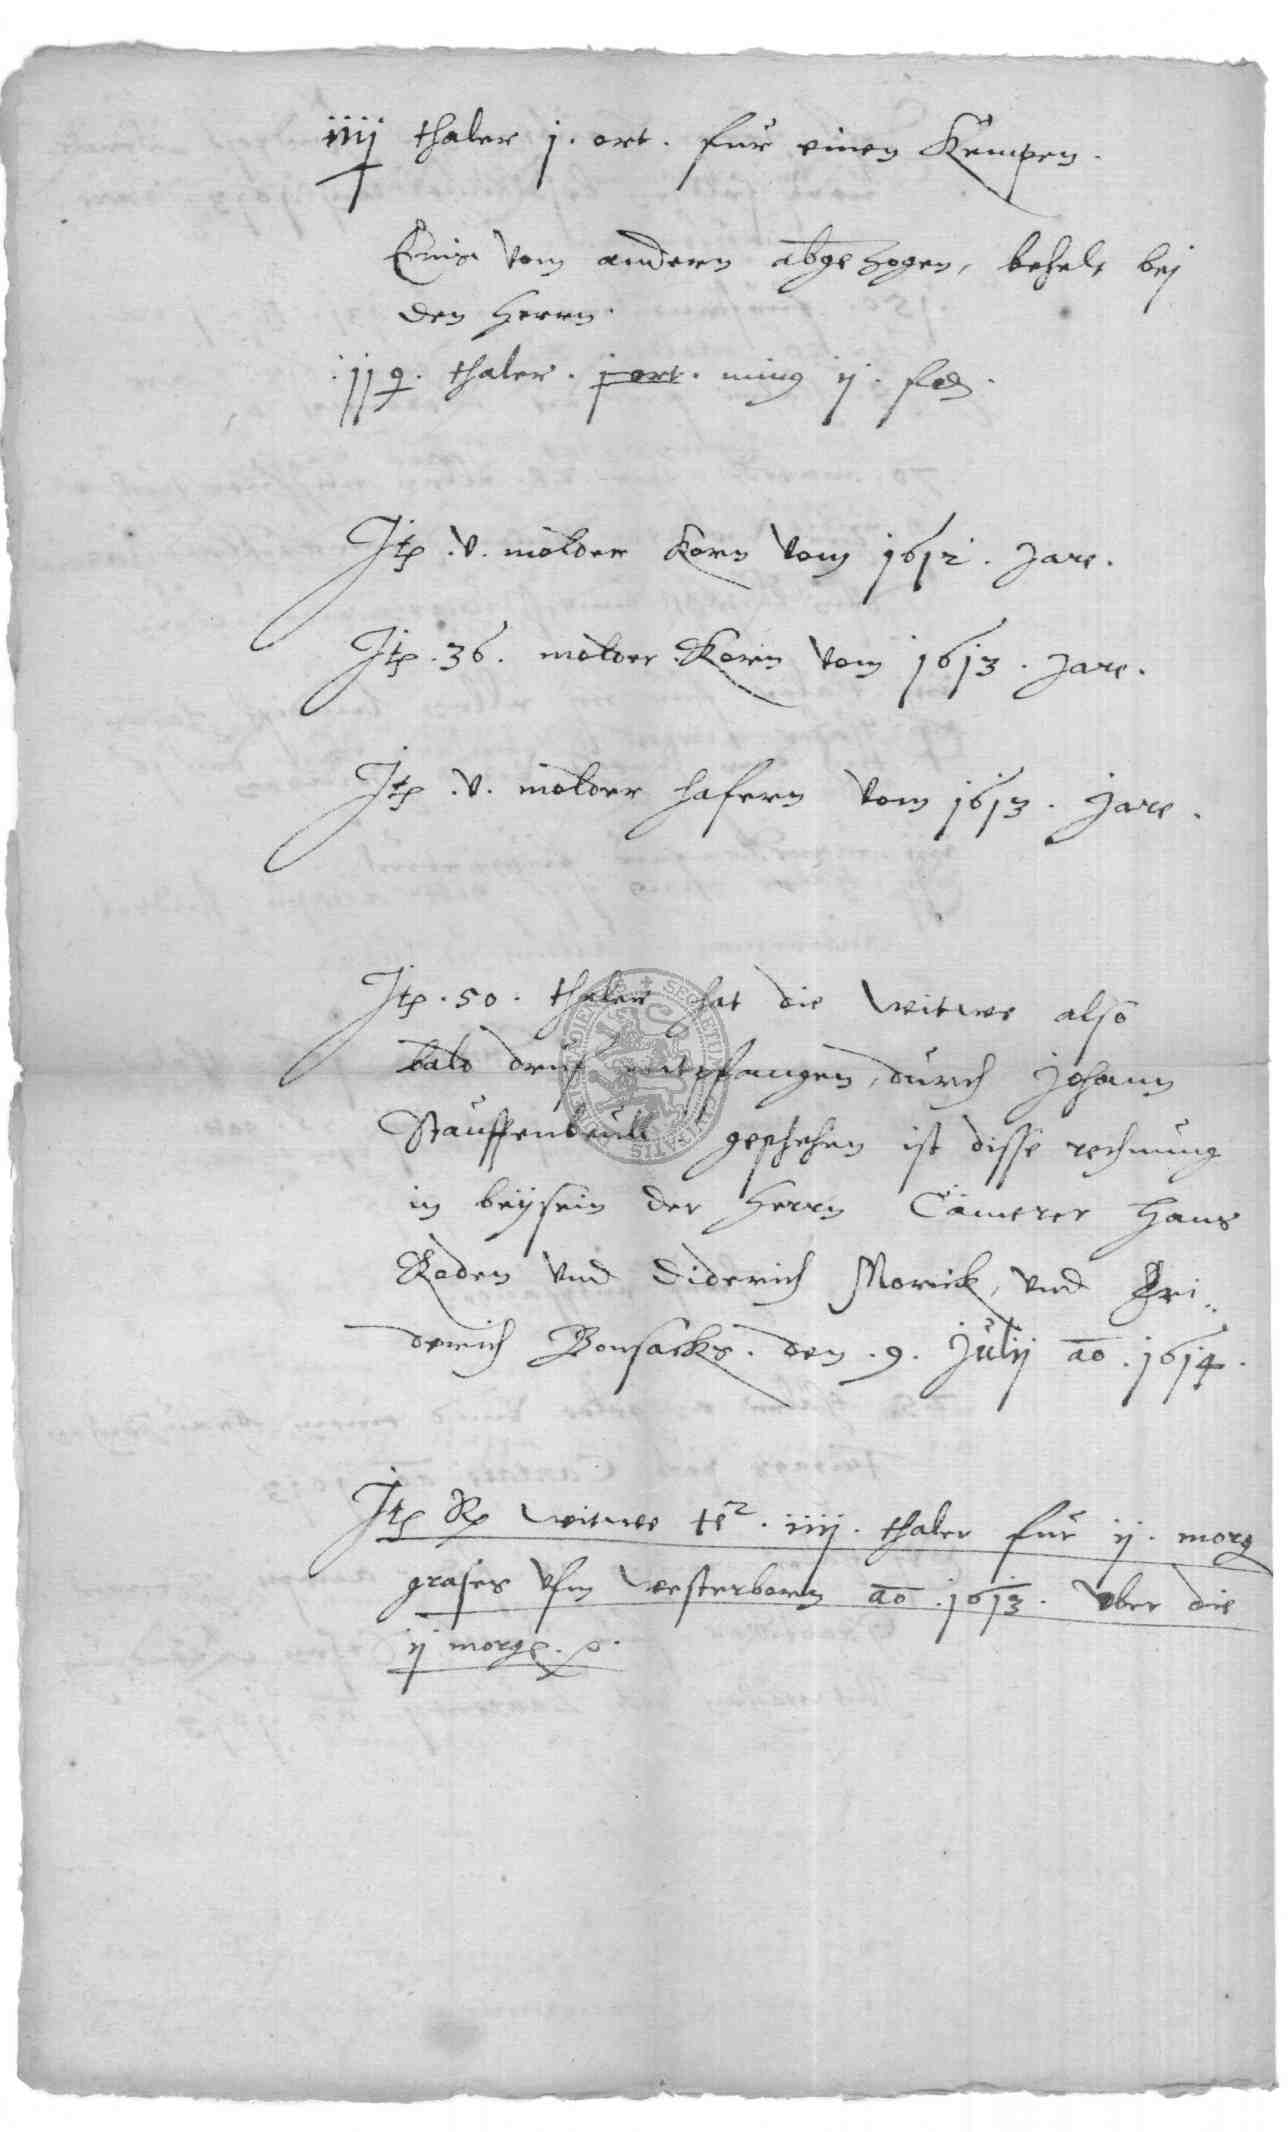 iiij thaler j. ort. für einen Kempen.
Eins vom andern abgezogen, behelt bej
den Herrn.
119. thaler. j ort. minus ij. ß
Itē .v. molder Korn vom 1612. Jare.
Itē .36. molder Korn vom 1613. Jare.
Itē .v. molder hafern vom 1613. Jare.
Itē .50. thaler hat die Witwe also
bald druf entpfangen, durch Johann
Stauffenbeull geschehen ist disse rechnung
in beysein der Herrn Cämerer Hans
Roden vnd Diderich Morick, vnd Fri„
derich Bonsacks. den .9. Julij ao. 1614.
Itē Witwe .iiij. thaler für ij. morg
grases vfm Westerborn ao. 1613. Vber die
ij morgē.